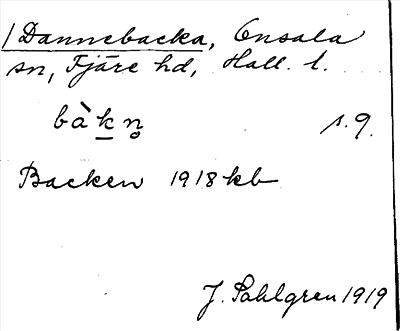 /Dannebacka, Onsala
sn, Fjäre hd, Hall. l.
bàk̲n̥ s. 9.
Backen 1918 kb
J. Sahlgren 1919